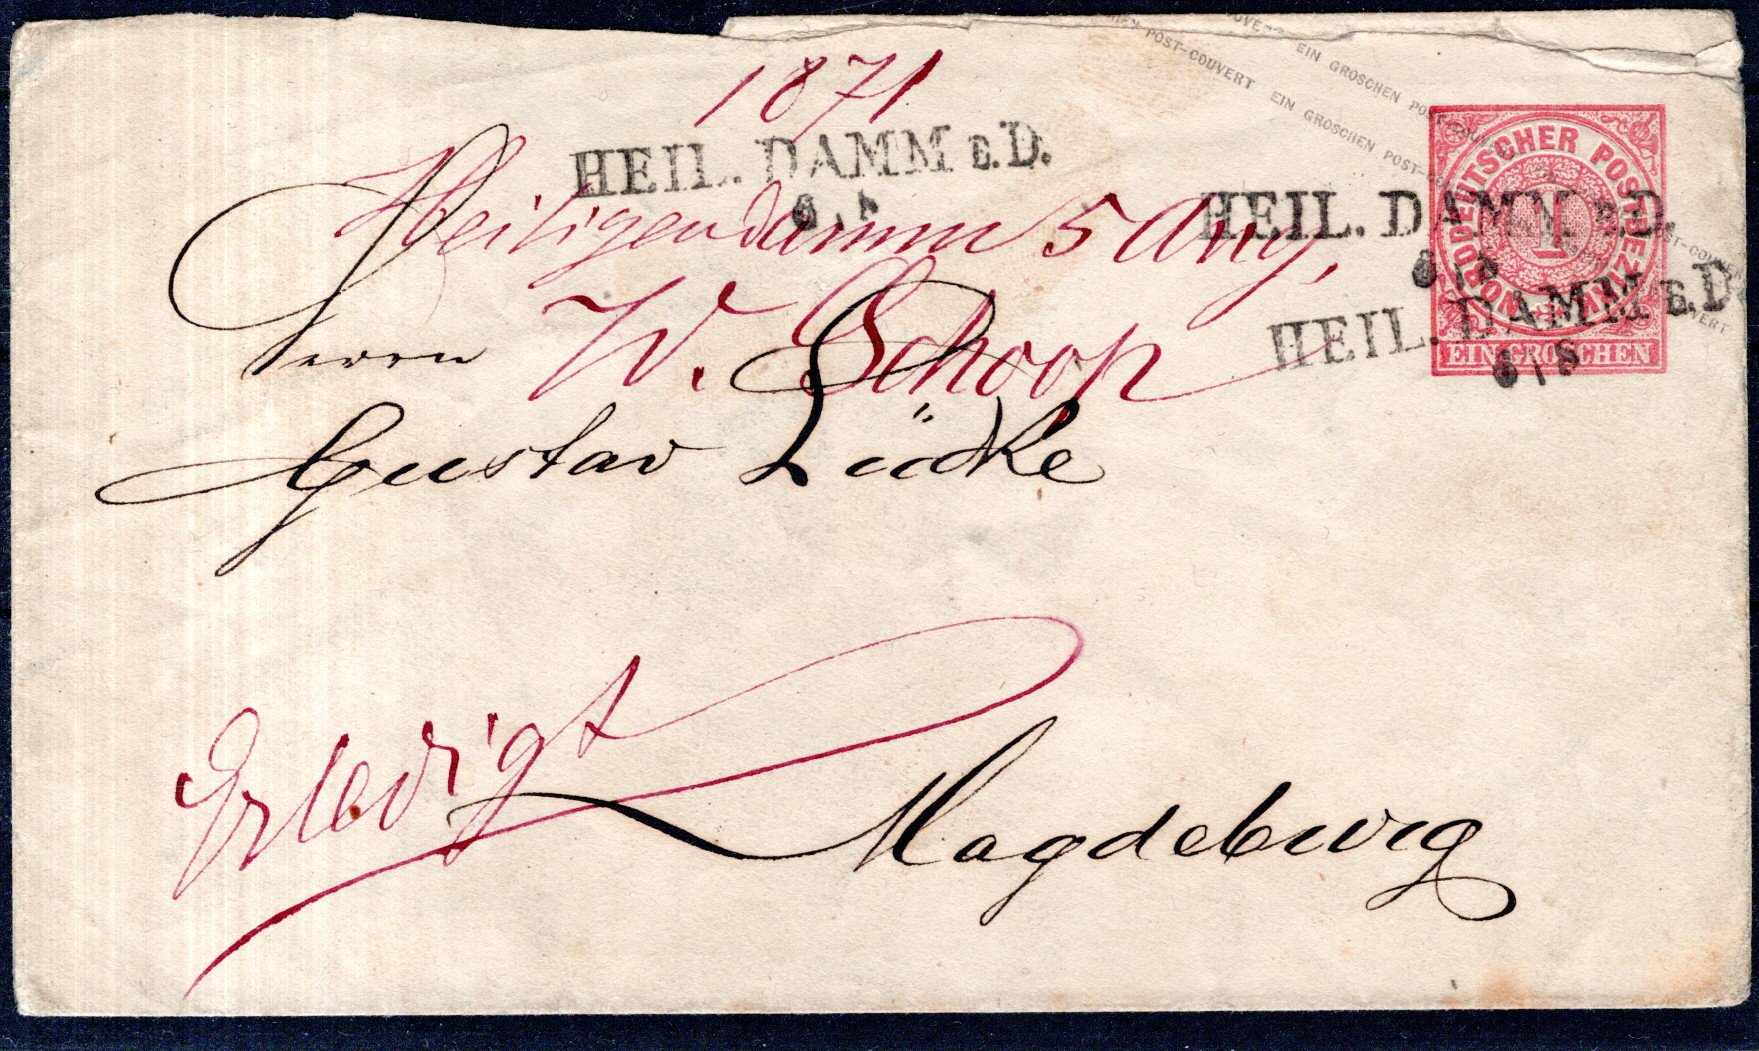 EIN POST-COUVERT EIN GROSCHEN POST-
EIN GROSCHEN POST-COUVERT
1871
HEIL. DAMM B. D.
Heiligendamm 5 Aug,
W. Schoop
NORDDEUTSCHER POSTBEZIRK
1
EIN GROSCHEN
HEIL. DAMM B. D.
HEIL. DAMM B. D.
6 | 8
Herrn
Gustav Lücke
Erledigt
Magdeburg